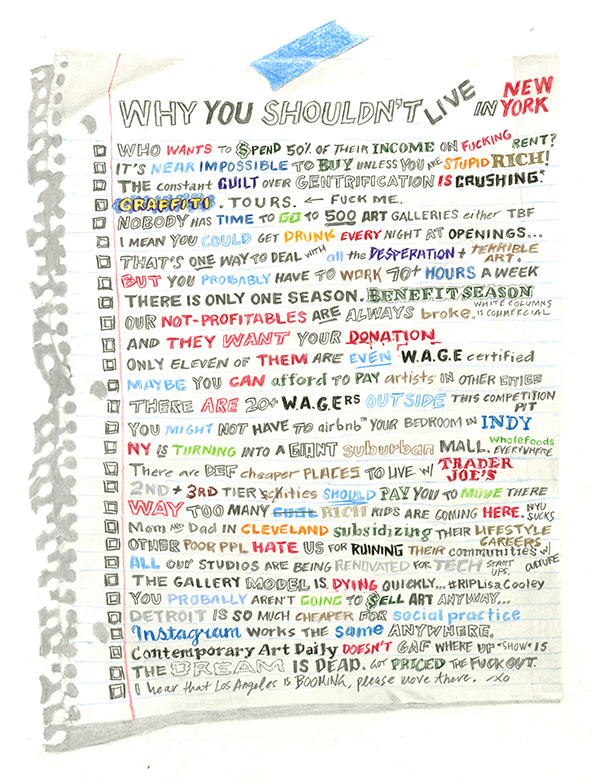 WHY YOU SHOULDN'T LIVE IN NEW YORK
WHO WANTS TO $PEND 50% OF THEIR INCOME ON FUCKING RENT?
IT'S NEAR IMPOSSIBLE TO BUY UNLESS YOU ARE STUPID RICH!
THE constant GUILT OVER GENTRIFICATION IS CRUSHING.*
GRAFFITI . TOURS. ← FUCK ME.
NOBODY HAS TIME TO GO TO 500 ART GALLERIES either TBF
I MEAN YOU COULD GET DRUNK EVERY NIGHT AT OPENINGS...
THAT'S ONE WAY TO DEAL WITH all the DESPERATION + TERRIBLE ART.
BUT YOU PROBABLY HAVE TO WORK 70+ HOURS A WEEK
THERE IS ONLY ONE SEASON. BENEFIT SEASON
OUR NOT-PROFITABLES ARE ALWAYS broke. WHITE COLUMNS IS COMMERCIAL
AND THEY WANT YOUR DONATION
ONLY ELEVEN OF THEM ARE EVEN W.A.G.E certified
MAYBE YOU CAN afford TO PAY artists IN OTHER CITIES
THERE ARE 20+ W.A.G.ERS OUTSIDE THIS COMPETITION PIT
YOU MIGHT NOT HAVE TO airbnb™ YOUR BEDROOM IN INDY
NY IS TURNING INTO A GIANT suburban MALL. wholefoods EVERYWHERE
There are DEF cheaper PLACES TO LIVE W/ TRADER JOE'S
2ND + 3RD TIER cities SHOULD PAY YOU TO MOVE THERE
WAY TOO MANY RICH KIDS ARE COMING HERE. NYU SUCKS
Mom AND Dad IN CLEVELAND subsidizing THEIR LIFESTYLE CAREERS
OTHER POOR PPL HATE US FOR RUINING THEIR communities w/ CULTURE
ALL OUR STUDIOS ARE BEING RENOVATED FOR TECH START UPS.
THE GALLERY MODEL IS DYING QUICKLY... #RIPLisaCooley
YOU PROBALLY AREN'T GOING TO $ELL ART ANYWAY...
DETROIT IS SO MUCH CHEAPER FOR social practice
Instagram WORKS THE Same ANYWHERE.
Contemporary Art Daily DOESN'T GAF WHERE UR "SHOW" IS
THE DREAM IS DEAD. GOT PRICED THE FUCK OUT.
I hear that Los Angeles is BOOMING, please move there. ~xo